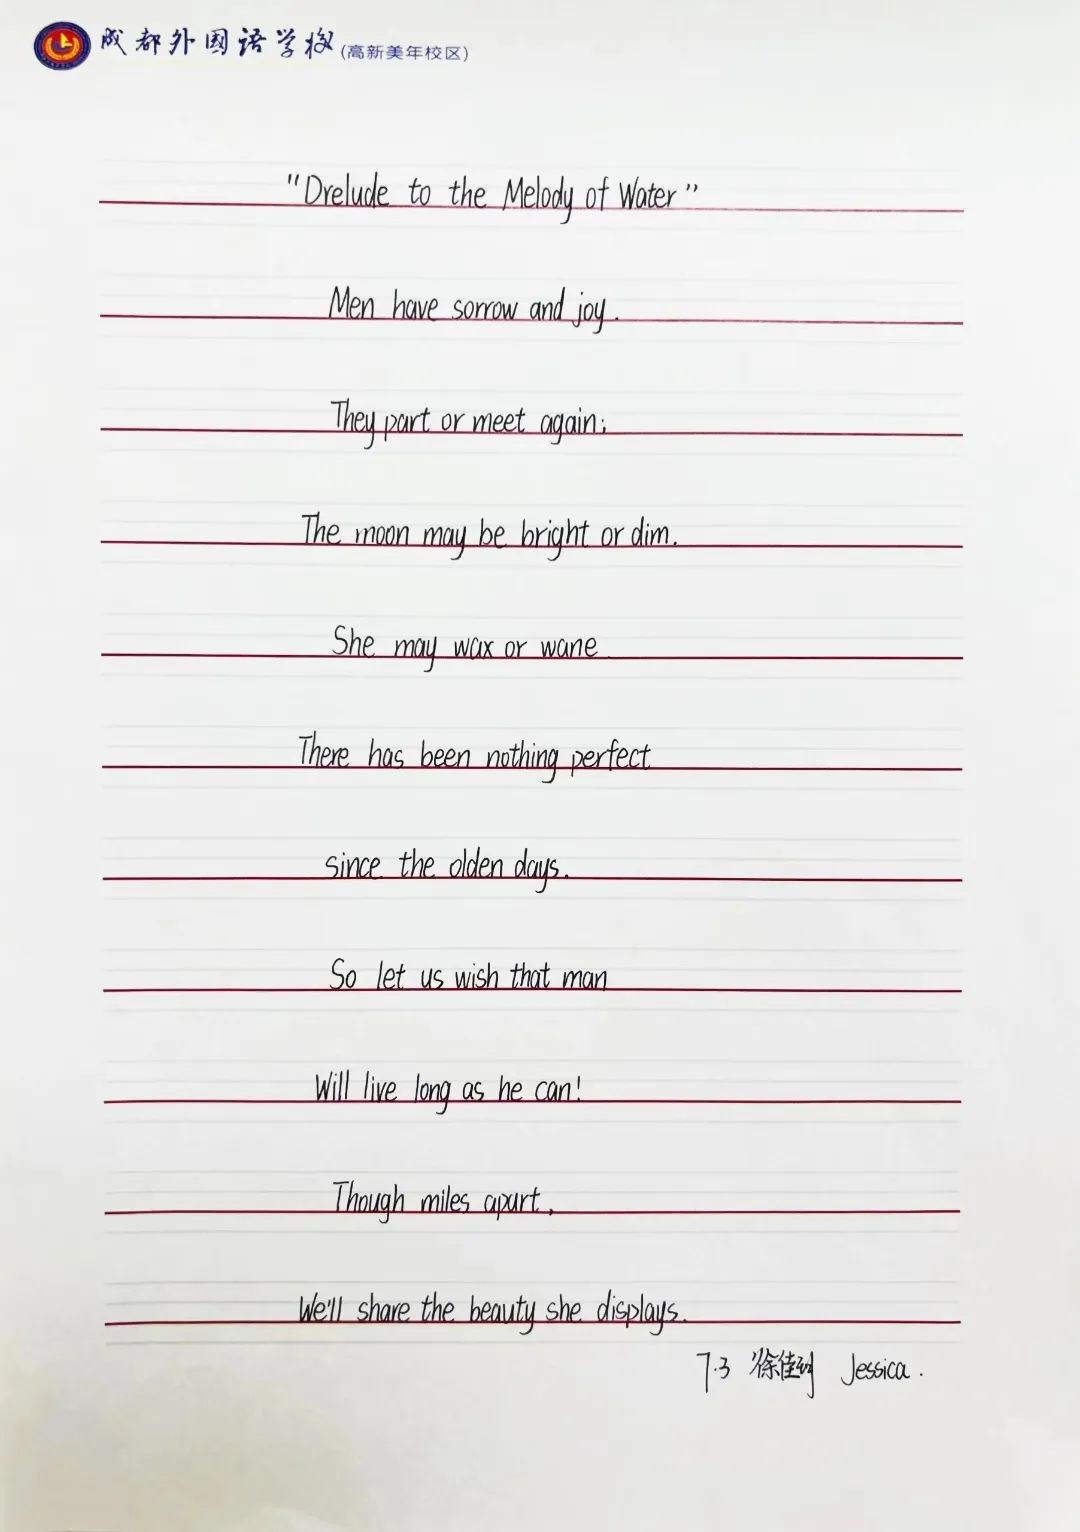 成都外国语学校(高新美年校区)
"Drelude to the Melody of Water"
Men have sorrow and joy.
They part or meet again;
The moon may be bright or dim.
She may wax or wane.
There has been nothing perfect
since the olden days.
So let us wish that man
Will live long as he can!
Though miles apart,
We'll share the beauty she displays.
7.3 徐佳 Jessica.